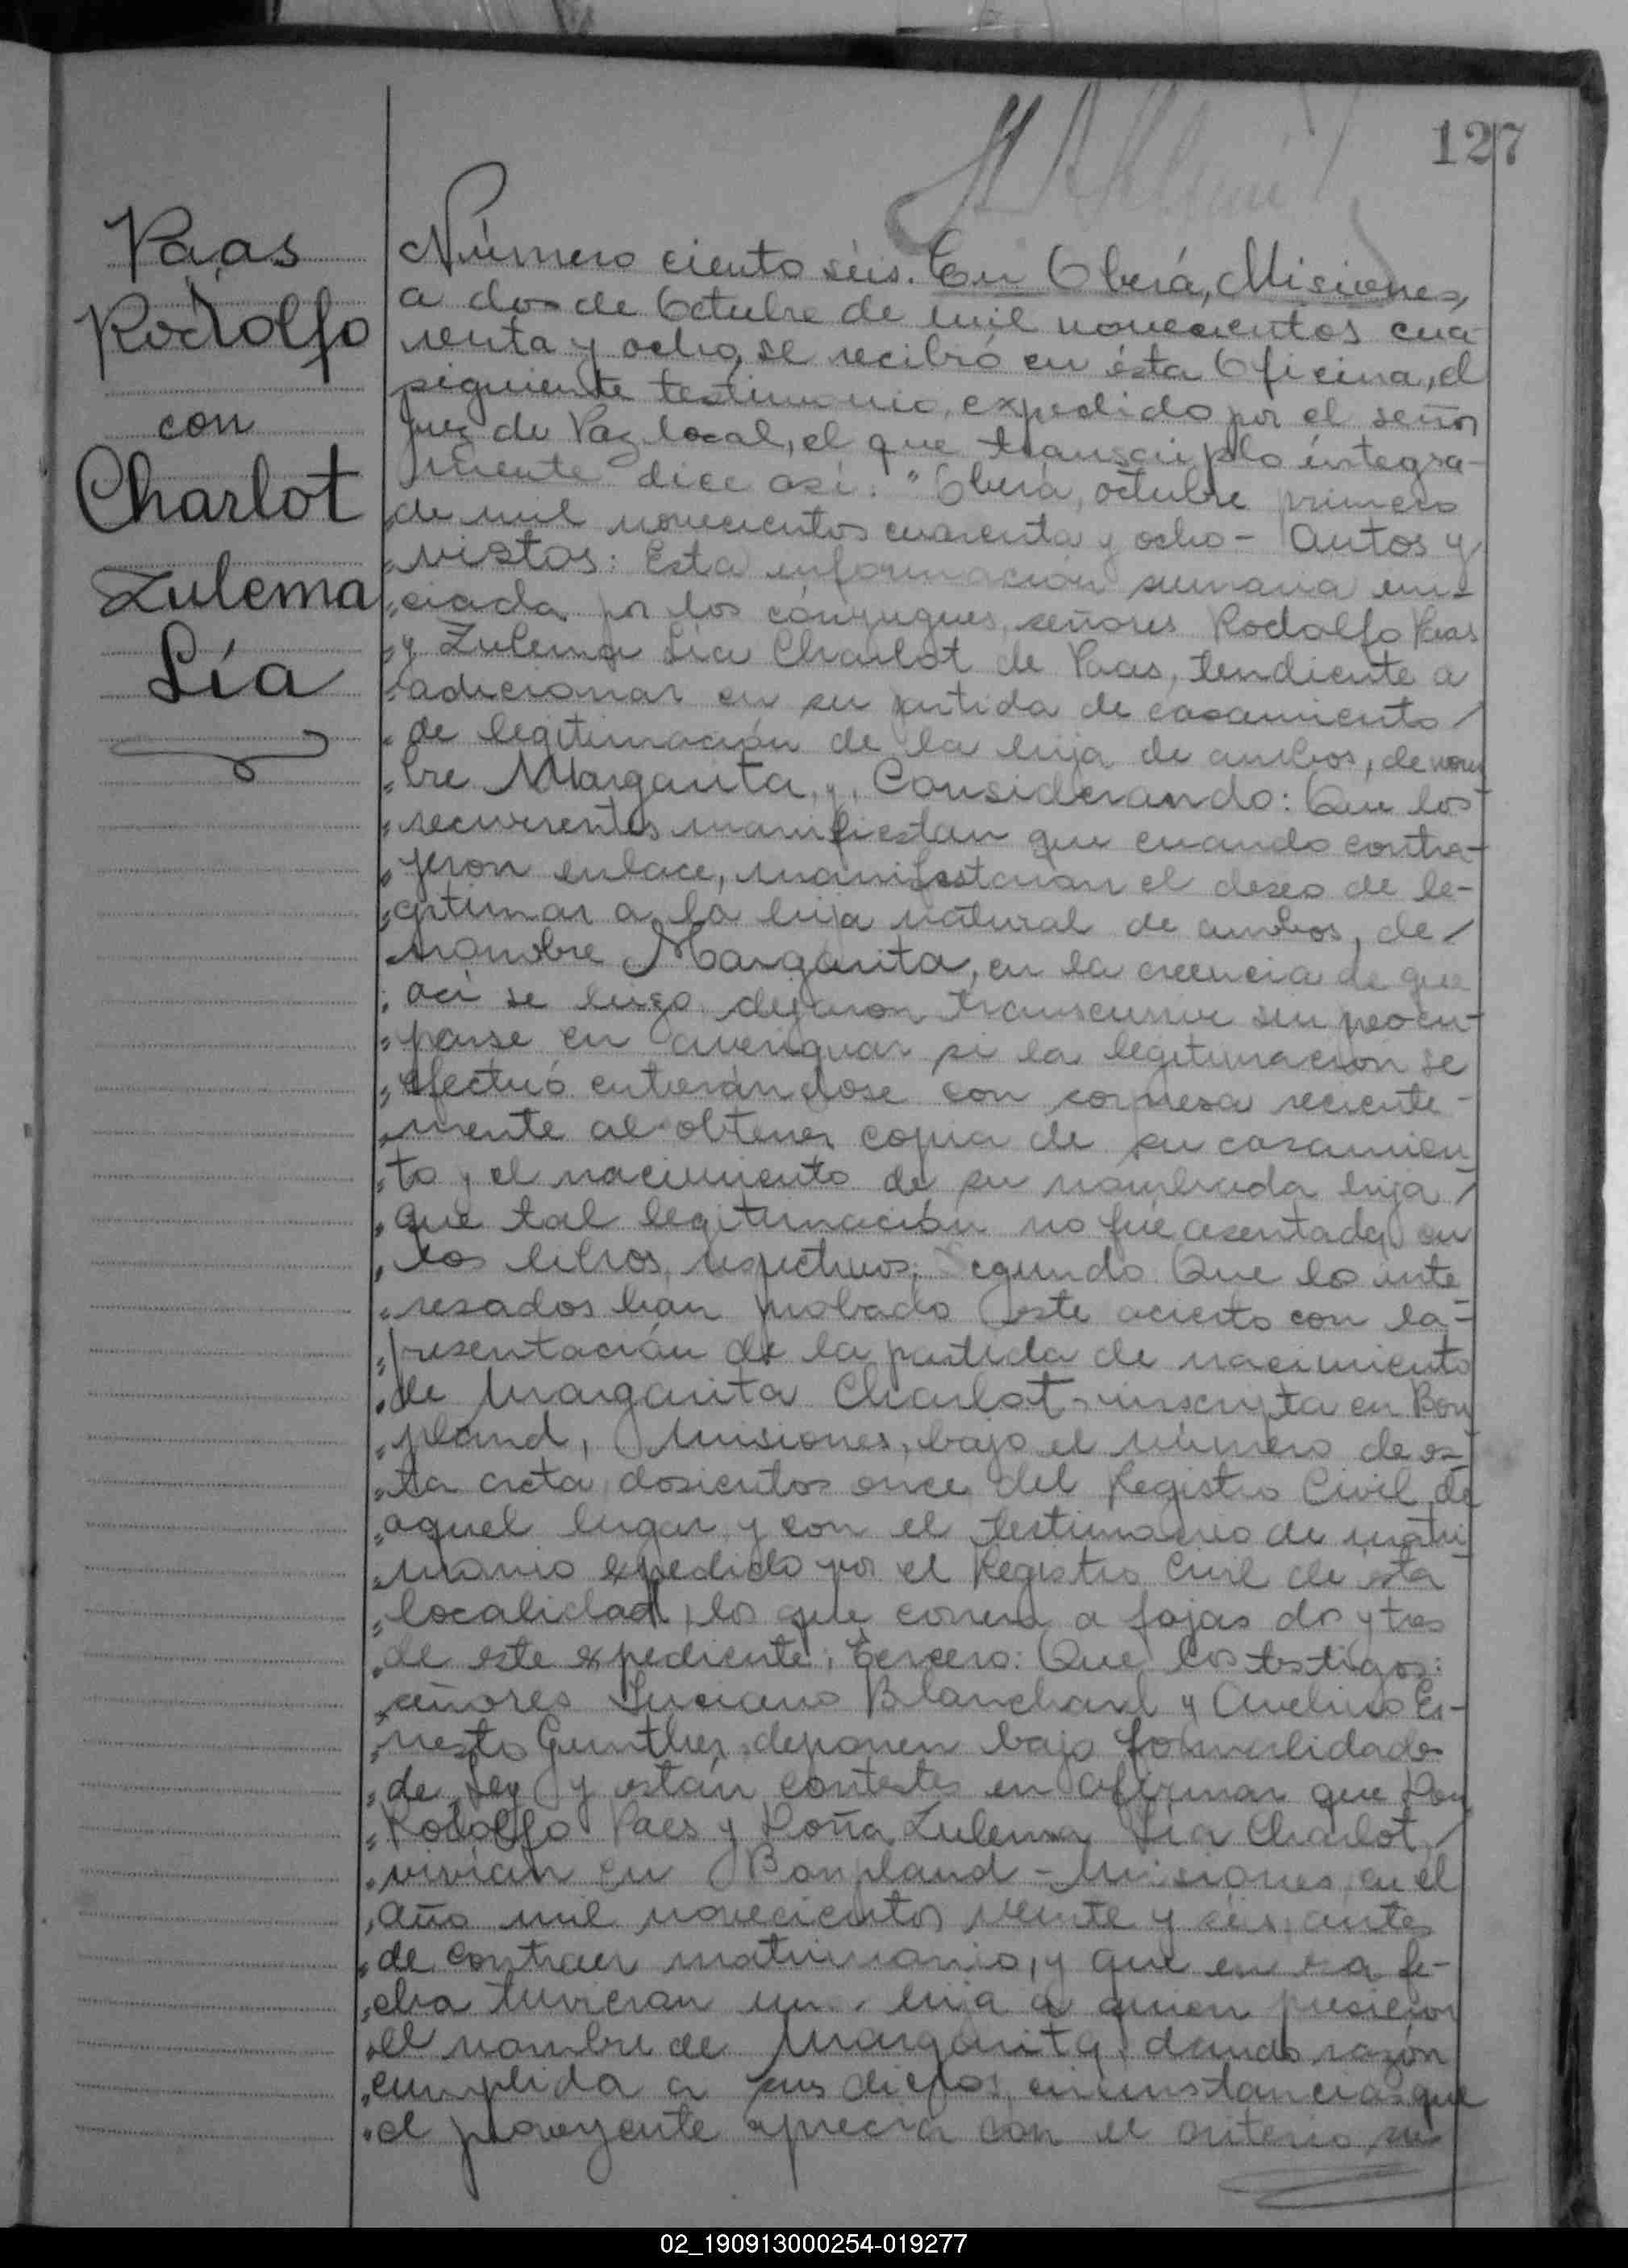 127
Paas
Rodolfo
con
Charlot
Zulema
Lía
Número ciento séis. En Oberá, Misiones,
a dos de Octubre de mil novecientos cua-
renta y ocho, se recibió en ésta Oficina, el
siguiente testimonio, expedido por el señor
Juez de Paz local, el que transcripto íntegra-
mente dice asi: "Oberá, octubre primero
de mil novecientos cuarenta y ocho - Autos y
vistos: Esta información sumaria ini-
ciada por los cónyugues, señores Rodolfo Paas
y Zulema Lía Charlot de Paas, tendiente a
adicionar en su partida de casamiento /
de legitimación de la hija de ambos, de nom
bre Margarita, y, Considerando: Que los
recurrentes manifiestan que cuando contra-
jeron enlace, manifestaron el deseo de le-
gitimar a la hija natural de ambos, de /
nombre Margarita, en la creencia de que
asi se hizo, dejaron transcurrir sin preocu-
parse en averiguar si la legitimación se
efectuó enterándose con sorpresa reciente-
mente al obtener copia de su casamien
to y el nacimiento de su nombrada hija /
que tal legitimación no fué asentada en
los libros respectivos; Segundo Que los inte
resados han probado este acierto con la-
presentación de la partida de nacimiento
de Margarita Charlot - inscripta en Bon
pland, Misiones, bajo el número de es-
ta acta, dosientos once, del Registro Civil de
aquel lugar y con el testimonio de matri
monio expedido por el Registro Civil de ésta
localidad, los que corren a fojas dos y tres
de este expediente; Tercero: Que los testigos:
señores Luciano Blanchard y Avelino Er-
nesto Gunther, deponen bajo formalidades
de Ley y están contestes en afirmar que Don
Rodolfo Paes y Doña Zulema Lía Charlot /
vivían en Bonpland - Misiones, en el
año mil novecientos veinte y séis, antes
de contraer matrimonio, y que en esa fe-
cha tuvieron una hija a quien pusieron
el nombre de Margarita, dando razón
cumplida a sus dichos, circunstancias que
el proveyente aprecia con el criterio su
02_190913000254-019277